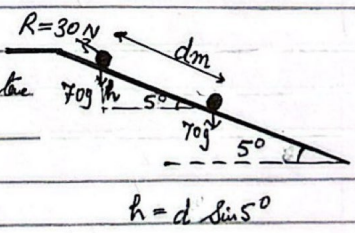 R=30N
dm
70g
h
5°
70g
5°
h = d Sin5°